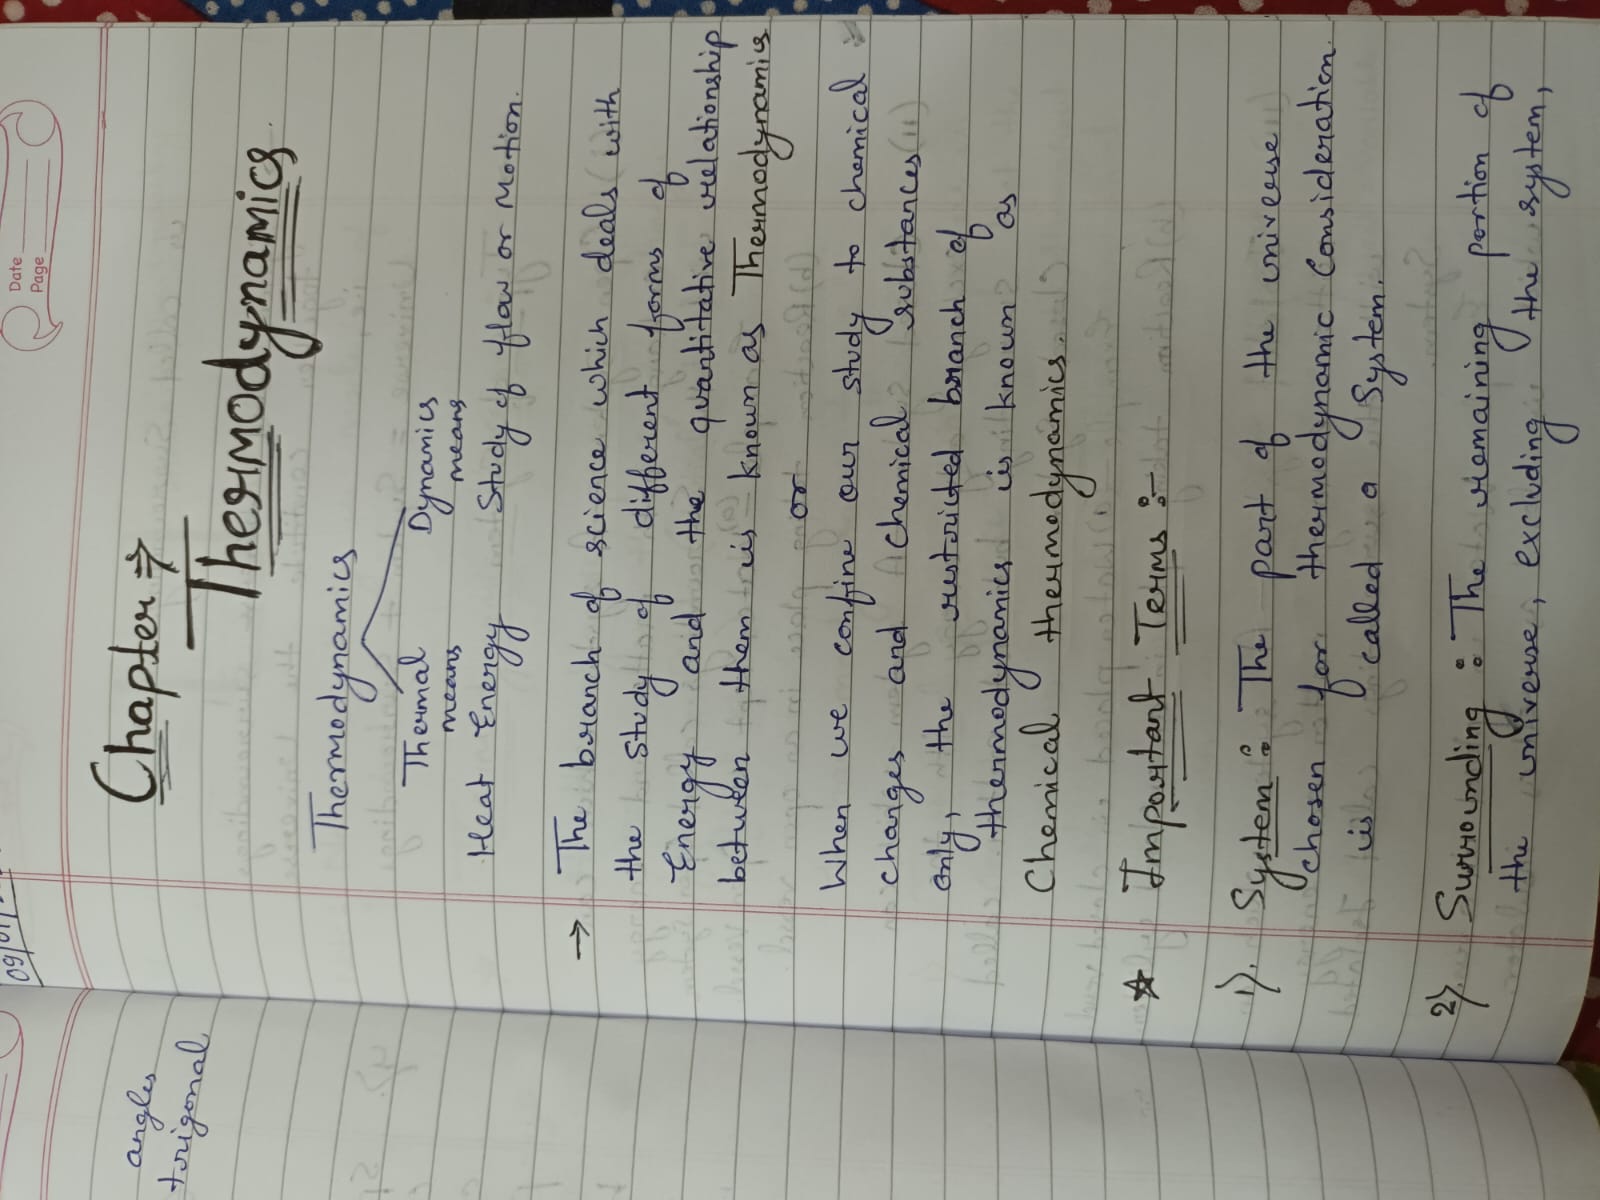 Date
Page
Chapter ⇒
Thermodynamics.
Thermodynamics
Thermal Dynamics
means means
Heat Energy Study of flow or Motion.
→ The branch of science which deals with
the study of different forms of
Energy and the quantitative relationship
between them is known as Thermodynamics
or
When we confine our study to chemical
changes and chemical substances
only, the restricted branch of
thermodynamics is known as
Chemical thermodynamics.
☆ Important Terms :-
1). System : The part of the universe
chosen for thermodynamic Consideration
is called a System.
2). Surrounding : The remaining portion of
the universe, excluding the system,
angles
trigonal